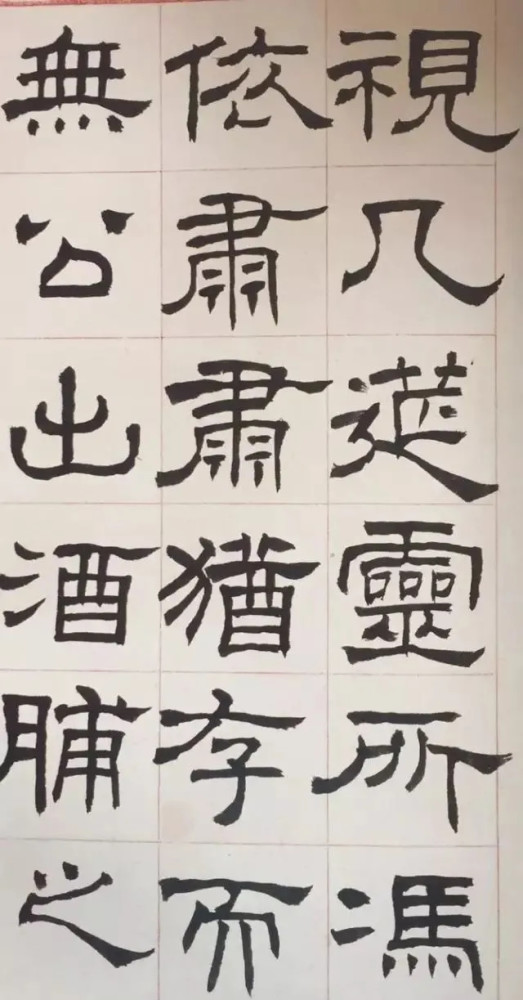 視几筵靈所馮
依肅肅猶存而
無公出酒脯之